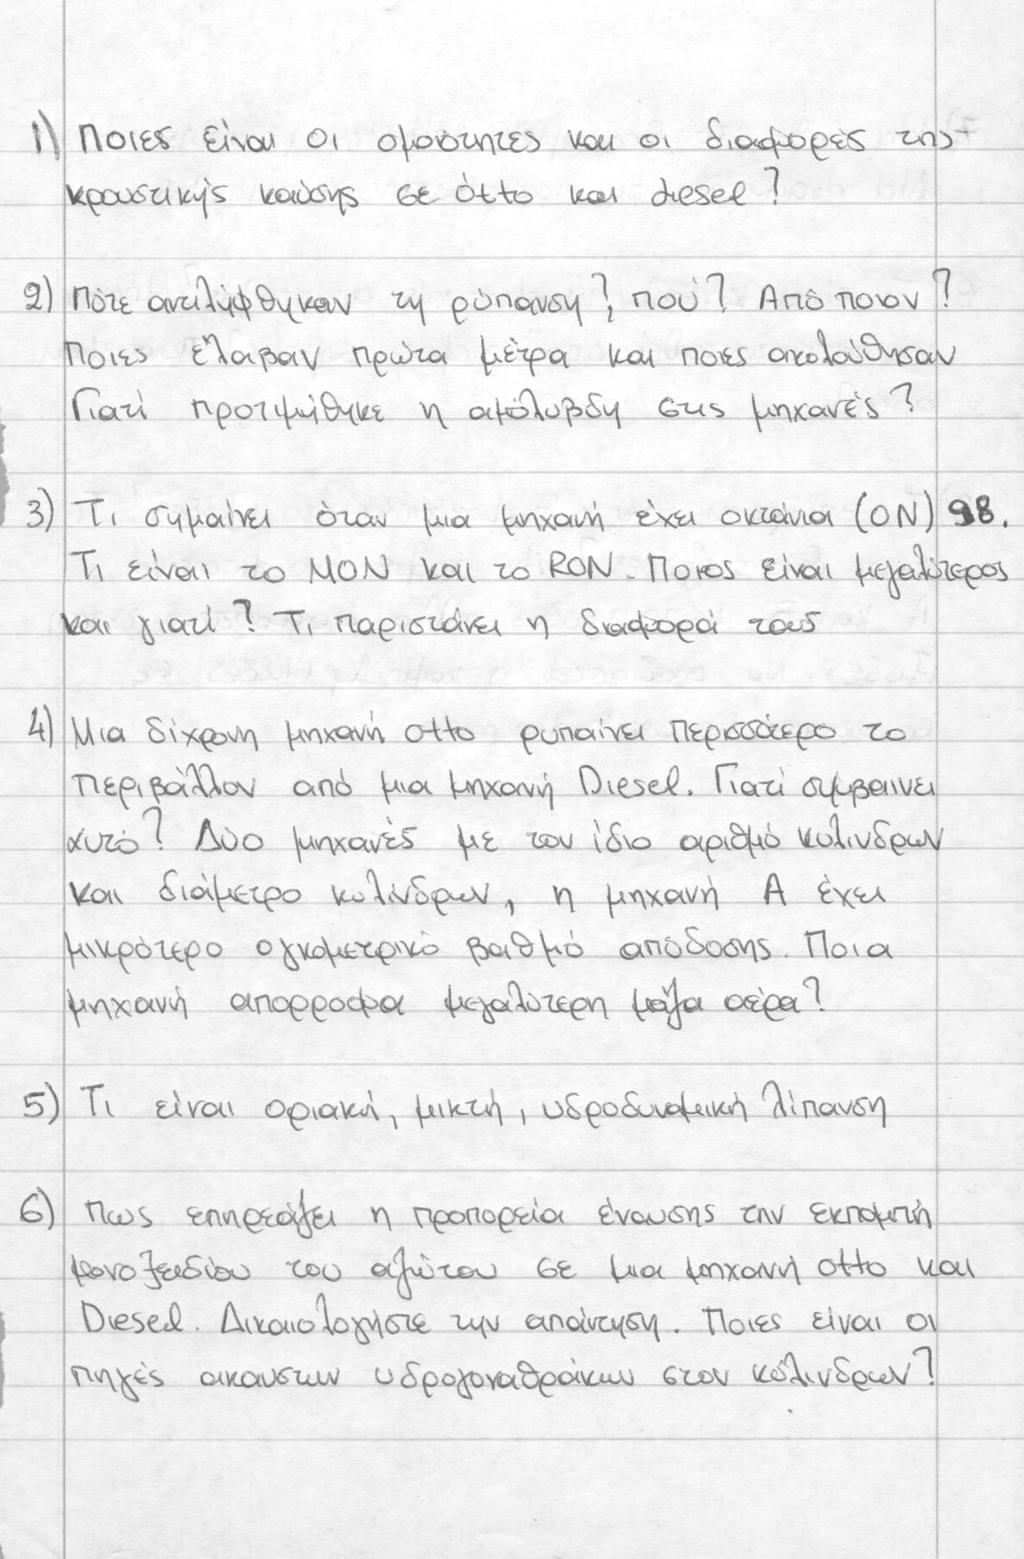 1) Ποιες είναι οι ομοιότητες και οι διαφορές της
κρουστικής καύσης σε otto και diesel?
2) Πότε αντιλήφθηκαν τη ρύπανση?, που? Από ποιον?
Ποιες έλαβαν πρώτα μέτρα και ποιες ακολούθησαν
Γιατί προτιμήθηκε η αμόλυβδη στις μηχανές?
3) Τι σημαίνει όταν μια μηχανή έχει οκτάνια (ON) 98.
Τι είναι το MON και το RON. Ποιος είναι μεγαλύτερος
και γιατί? Τι παριστάνει η διαφορά τους
4) Μια δίχρονη μηχανή otto ρυπαίνει περισσότερο το
περιβάλλον από μια μηχανή Diesel. Γιατί συμβαίνει
αυτό? Δύο μηχανές με τον ίδιο αριθμό κυλινδρων
και διάμετρο κυλίνδρων, η μηχανή Α έχει
μικρότερο ογκομετρικό βαθμό απόδοσης. Ποια
μηχανή απορροφα μεγαλύτερη μάζα αέρα?
5) Τι είναι οριακή, μικτή, υδροδυναμική λίπανση
6) Πως επηρεάζει η προπορεία έναυσης την εκπομπή
μονοξειδίου του αζώτου σε μια μηχανή otto και
Diesel. Δικαιολογήστε την απάντηση. Ποιες είναι οι
πηγές ακαυστων υδρογοναθράκων στον κύλινδρων?